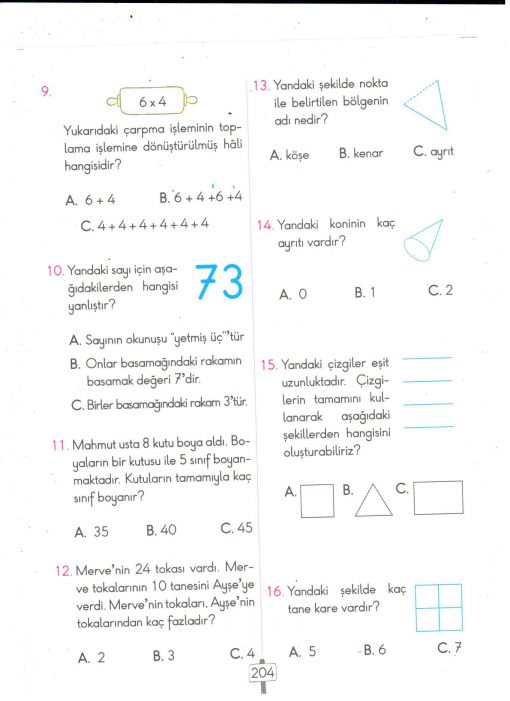 9.
6 x 4
Yukarıdaki çarpma işleminin top-
lama işlemine dönüştürülmüş hâli
hangisidir?
A. 6 + 4
B. 6 + 4 +6 +4
C. 4 + 4 + 4 + 4 + 4 + 4
10. Yandaki sayı için aşa-
ğıdakilerden hangisi
yanlıştır?
73
A. Sayının okunuşu "yetmiş üç"'tür
B. Onlar basamağındaki rakamın
basamak değeri 7'dir.
C. Birler basamağındaki rakam 3'tür.
11. Mahmut usta 8 kutu boya aldı. Bo-
yaların bir kutusu ile 5 sınıf boyan-
maktadır. Kutuların tamamıyla kaç
sınıf boyanır?
A. 35
B. 40
C. 45
12. Merve'nin 24 tokası vardı. Mer-
ve tokalarının 10 tanesini Ayşe'ye
verdi. Merve'nin tokaları, Ayşe'nin
tokalarından kaç fazladır?
A. 2
B. 3
C. 4
13. Yandaki şekilde nokta
ile belirtilen bölgenin
adı nedir?
A. köşe
B. kenar
C. ayrıt
14. Yandaki koninin kaç
ayrıtı vardır?
A. 0
B. 1
C. 2
15. Yandaki çizgiler eşit
uzunluktadır. Çizgi-
lerin tamamını kul-
lanarak aşağıdaki
şekillerden hangisini
oluşturabiliriz?
A.
B.
C.
16. Yandaki şekilde kaç
tane kare vardır?
A. 5
B. 6
C. 7
204